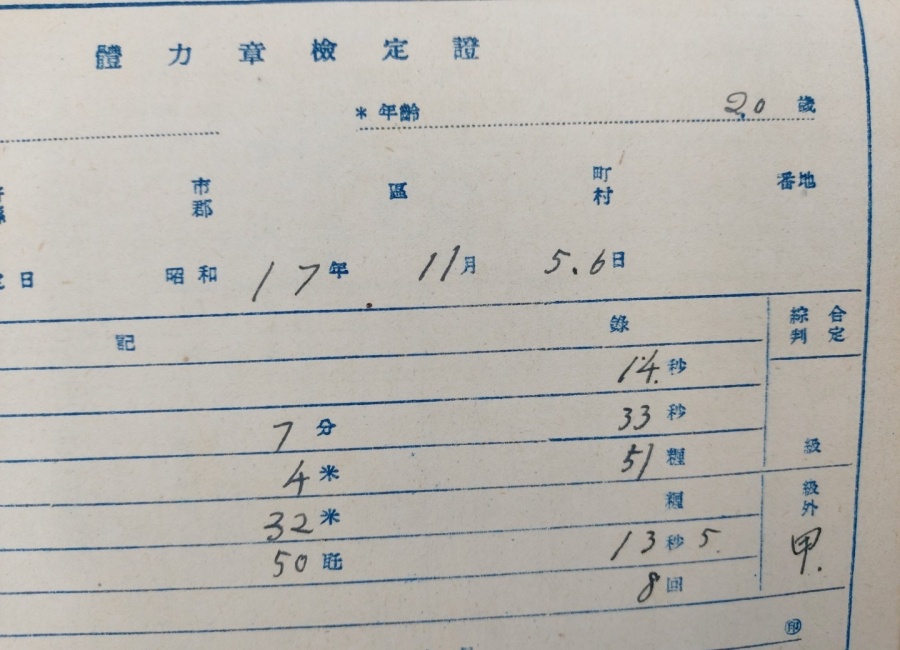 體力章檢定證
* 年齡 20 歲
市郡 區 町村 番地
日 昭和 17年 11月 5.6日
記錄 綜合判定
14.秒
7分 33秒
4米 51糎 級
32米 糎 級外
50瓩 13秒5. 甲.
8回
印